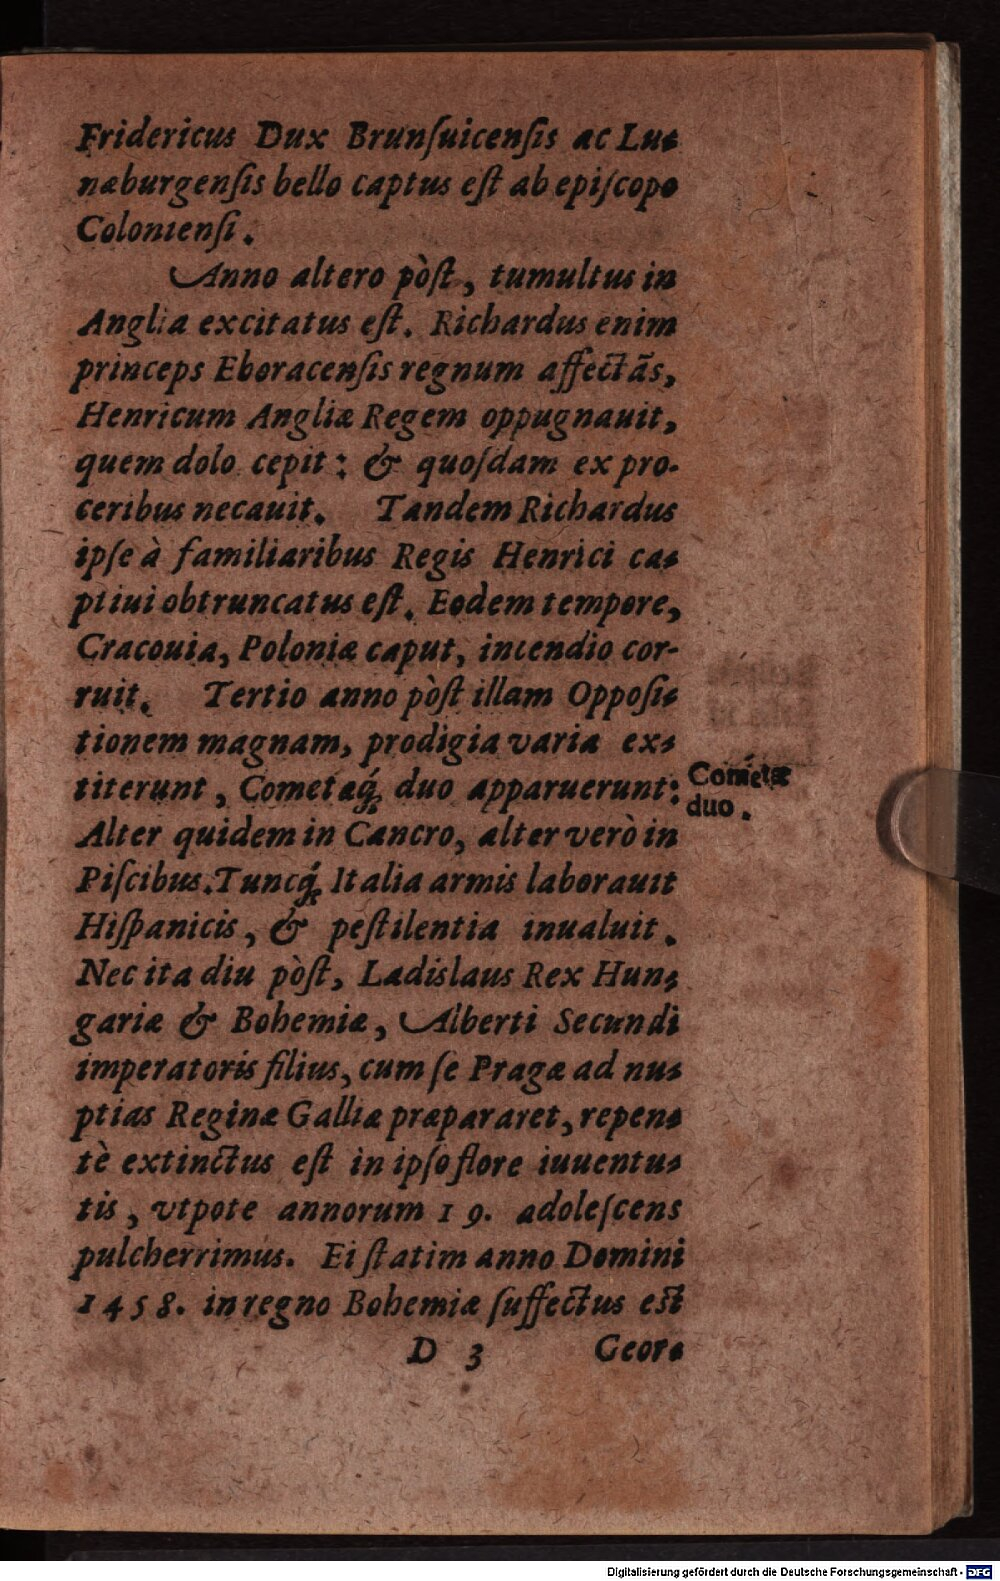 Fridericus Dux Brunſuicenſis ac Lu-
næburgenſis bello captus eſt ab epiſcopo
Colonienſi.
Anno altero pòſt, tumultus in
Anglia excitatus eſt. Richardus enim
princeps Eboracenſis regnum affectãs,
Henricum Angliæ Regem oppugnauit,
quem dolo cepit: & quoſdam ex pro-
ceribus necauit. Tandem Richardus
ipſe à familiaribus Regis Henrici ca-
ptiui obtruncatus eſt. Eodem tempore,
Cracouia, Poloniæ caput, incendio cor-
ruit. Tertio anno pòſt illam Oppoſi-
tionem magnam, prodigia varia ex-
titerunt, Cometaq́; duo apparuerunt:
Cometæ
duo.
Alter quidem in Cancro, alter verò in
Piſcibus. Tuncq́; Italia armis laborauit
Hiſpanicis, & peſtilentia inualuit.
Nec ita diu pòſt, Ladislaus Rex Hun-
gariæ & Bohemiæ, Alberti Secundi
imperatoris filius, cum ſe Pragæ ad nu-
ptias Reginæ Galliæ præpararet, repen-
tè extinctus eſt in ipſo flore iuuentu-
tis, vtpote annorum 19. adoleſcens
pulcherrimus. Ei ſtatim anno Domini
1458. in regno Bohemiæ ſuffectus eſt
D 3 Geor-
Digitalisierung gefördert durch die Deutsche Forschungsgemeinschaft - DFG